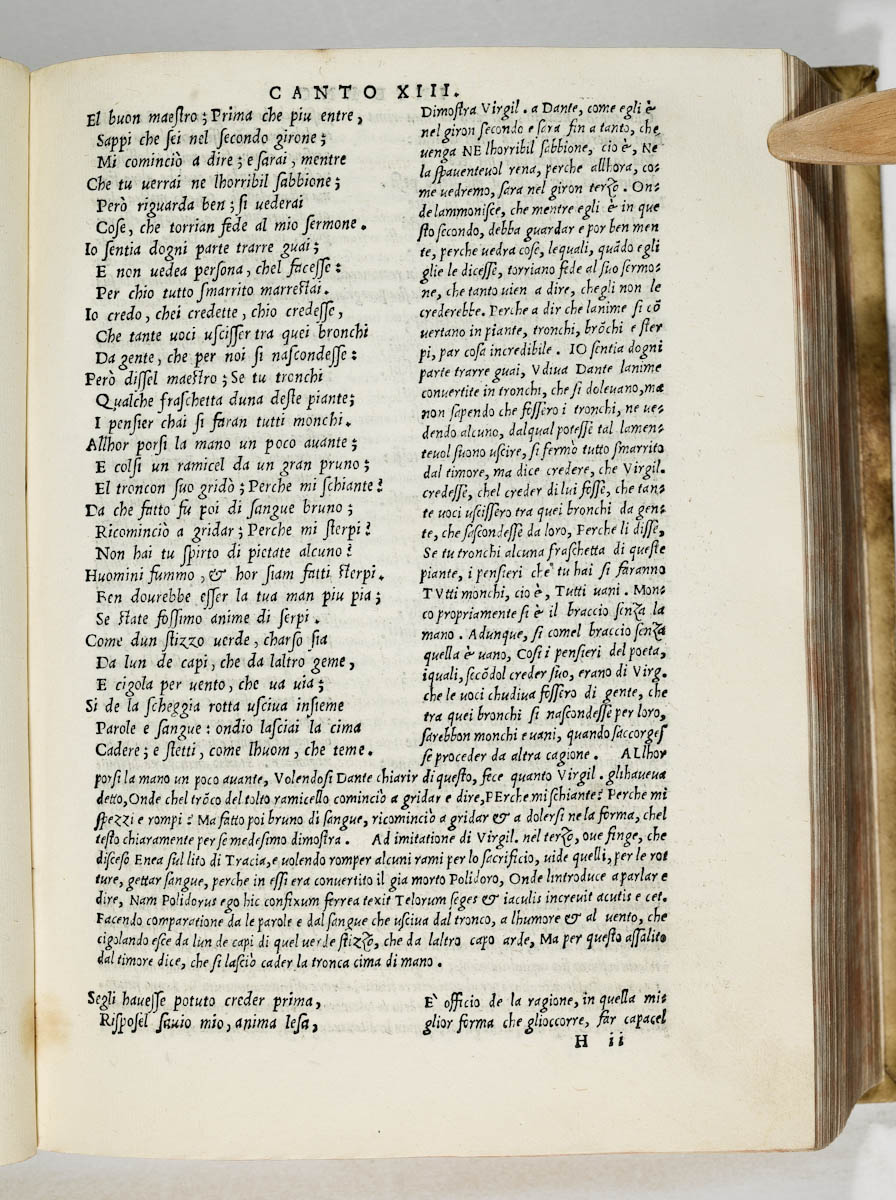 CANTO XIII.
El buon maestro; Prima che piu entre,
Sappi che sei nel secondo girone;
Mi cominciò a dire; e sarai, mentre
Che tu uerrai ne lhorribil sabbione;
Però riguarda ben; si uederai
Cose, che torrian fede al mio sermone.
Io sentia dogni parte trarre guai;
E non uedea persona, chel facesse:
Per chio tutto smarrito marrestai.
Io credo, chei credette, chio credesse,
Che tante uoci uscisser tra quei bronchi
Da gente, che per noi si nascondesse:
Però dissel maestro; Se tu tronchi
Qualche fraschetta duna deste piante;
I pensier chai si faran tutti monchi.
Allhor porsi la mano un poco auante;
E colsi un ramicel da un gran pruno;
El troncon suo gridò; Perche mi schiante?
Da che fatto fu poi di sangue bruno;
Ricominciò a gridar; Perche mi sterpi?
Non hai tu spirto di pietate alcuno?
Huomini fummo, & hor siam fatti sterpi.
Ben dourebbe esser la tua man piu pia;
Se state fossimo anime di serpi.
Come dun stizzo uerde, charso sia
Da lun de capi, che da laltro geme,
E cigola per uento, che ua uia;
Si de la scheggia rotta usciua insieme
Parole e sangue: ondio lasciai la cima
Cadere; e stetti, come lhuom, che teme.
Dimostra Virgil. a Dante, come egli è
nel giron secondo e sara fin a tanto, che
uenga NE lhorribil sabbione, cio è, Ne
la spauenteuol rena, perche allhora, co-
me uedremo, sara nel giron terzo. On-
de lammonisce, che mentre egli è in que
sto secondo, debba guardar e por ben men
te, perche uedra cose, lequali, quãdo egli
glie le dicesse, torriano fede al suo sermo-
ne, che tanto uien a dire, chegli non le
crederebbe. Perche a dir che lanime si cõ
uertano in piante, tronchi, brõchi e ster
pi, par cosa incredibile. IO sentia dogni
parte trarre guai, Vdiua Dante lanime
conuertite in tronchi, che si doleuano, ma
non sapendo che fossero i tronchi, ne ue-
dendo alcuno, dalqual potesse tal lamen-
teuol suono uscire, si fermò tutto smarrito
dal timore, ma dice credere, che Virgil.
credesse, chel creder di lui fosse, che tan-
te uoci uscissero tra quei bronchi da gen-
te, che sascondesse da loro, Perche li disse,
Se tu tronchi alcuna fraschetta di queste
piante, i pensieri che tu hai si faranno
TVtti monchi, cio è, Tutti uani. Mon-
co propriamente si è il braccio senza la
mano. Adunque, si comel braccio senza
quella è uano, Cosi i pensieri del poeta,
iquali, secõdol creder suo, erano di Virg.
che le uoci chudiua fossero di gente, che
tra quei bronchi si nascondesse per loro,
sarebbon monchi e uani, quando saccorges
se proceder da altra cagione. ALlhor
porsi la mano un poco auante, Volendosi Dante chiarir di questo, fece quanto Virgil. glihaueua
detto, Onde chel trõco del tolto ramicello cominciò a gridar e dire, PErche mi schiante? Perche mi
spezzi e rompi? Ma fatto poi bruno di sangue, ricominciò a gridar & a dolersi ne la forma, chel
testo chiaramente per se medesimo dimostra. Ad imitatione di Virgil. nel terzo, oue finge, che
disceso Enea sul lito di Tracia, e uolendo romper alcuni rami per lo sacrificio, uide quelli, per le rot
ture, gettar sangue, perche in essi era conuertito il gia morto Polidoro, Onde lintroduce a parlar e
dire, Nam Polidorus ego hic confixum ferrea texit Telorum seges & iaculis increuit acutis e cet.
Facendo comparatione da le parole e dal sangue che usciua dal tronco, a lhumore & al uento, che
cigolando esce da lun de capi di quel uerde stizzo, che da laltro capo arde, Ma per questo assalito
dal timore dice, che si lasciò cader la tronca cima di mano.
Segli hauesse potuto creder prima,
Risposel sauio mio, anima lesa,
E' officio de la ragione, in quella mi-
glior forma che glioccorre, far capacel
H ii